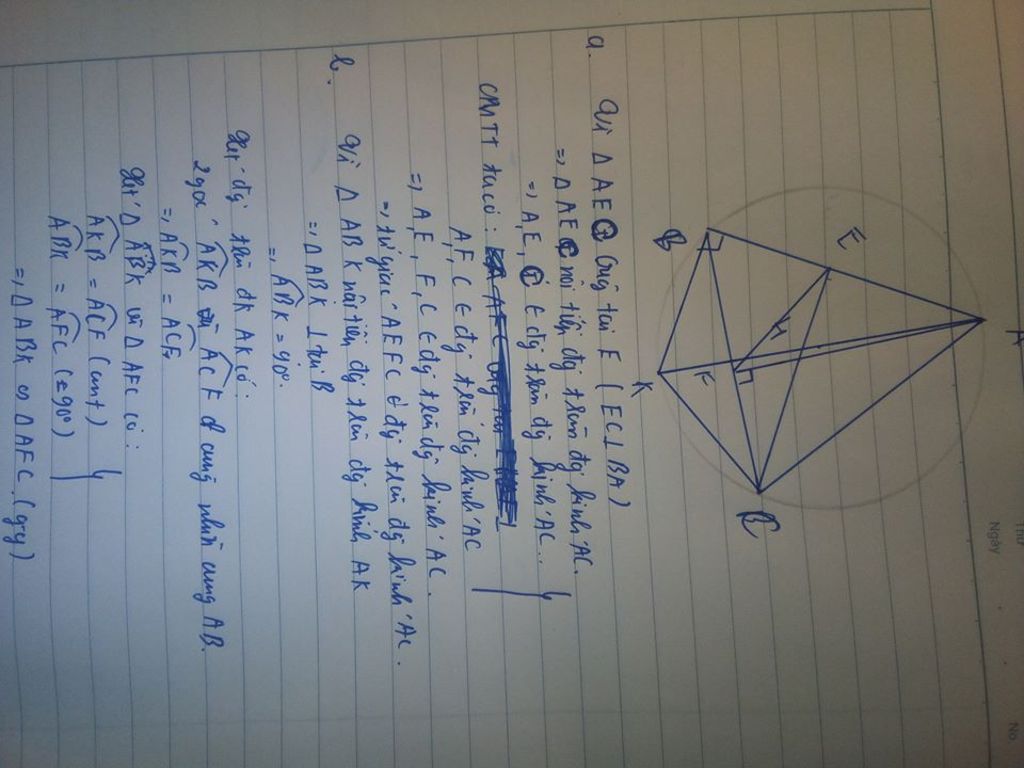 Thứ
Ngày
No
A
E
B
H
F
K
C
a. Vì △ AEC vuông tại E (EC⊥BA)
=> △ AEC nội tiếp đg tròn đg kính AC.
=> A, E, C ∈ đg tròn đg kính AC..
CMTT ta có:
A, F, C ∈ đg tròn đg kính AC
=> A, E, F, C ∈ đg tròn đg kính AC.
=> tứ giác AEFC ∈ đg tròn đg kính AC.
b. Vì △ ABK nội tiếp đg tròn đg kính AK
=> △ ABK ⊥ tại B
=> ABK = 90°.
Xét đg tròn đk AK có:
2 góc AKB và ACF cùng nhìn cung AB.
=> AKB = ACF
Xét △ ABK và △ AFC có:
AKB = ACF (cmt)
ABK = AFC (=90°)
=> △ ABK ∽ △ AFC. (g-g)